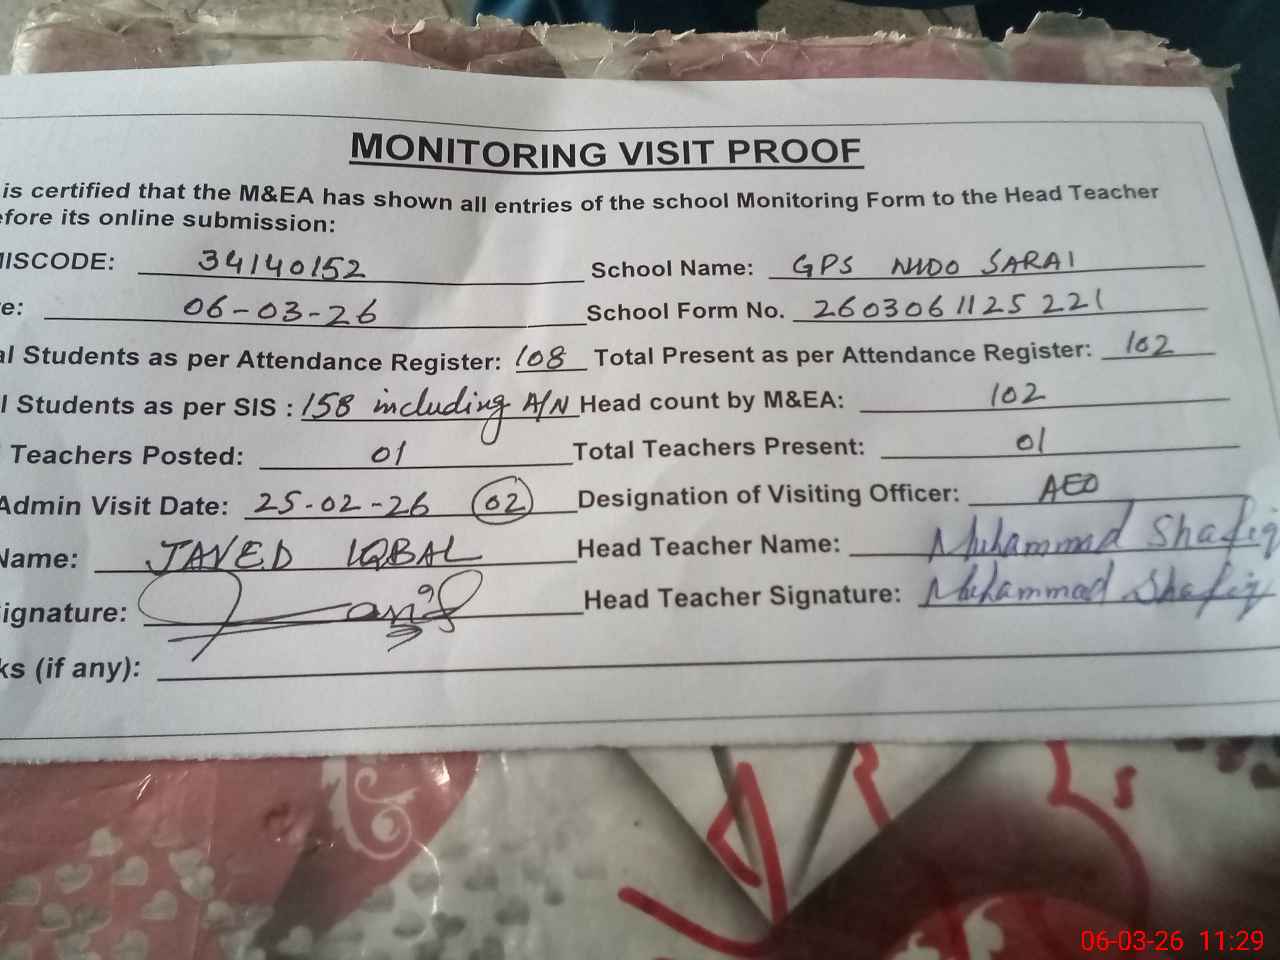 MONITORING VISIT PROOF
is certified that the M&EA has shown all entries of the school Monitoring Form to the Head Teacher
efore its online submission:
MISCODE: 34140152 School Name: GPS NIDO SARAI
e: 06-03-26 School Form No. 2603061125221
al Students as per Attendance Register: 108 Total Present as per Attendance Register: 102
l Students as per SIS : 158 including A/N Head count by M&EA: 102
Teachers Posted: 01 Total Teachers Present: 01
Admin Visit Date: 25-02-26 02 Designation of Visiting Officer: AEO
Name: JAVED IQBAL Head Teacher Name: Muhammad Shafiq
ignature: Head Teacher Signature: Muhammad Shafiq
ks (if any):
06-03-26 11:29